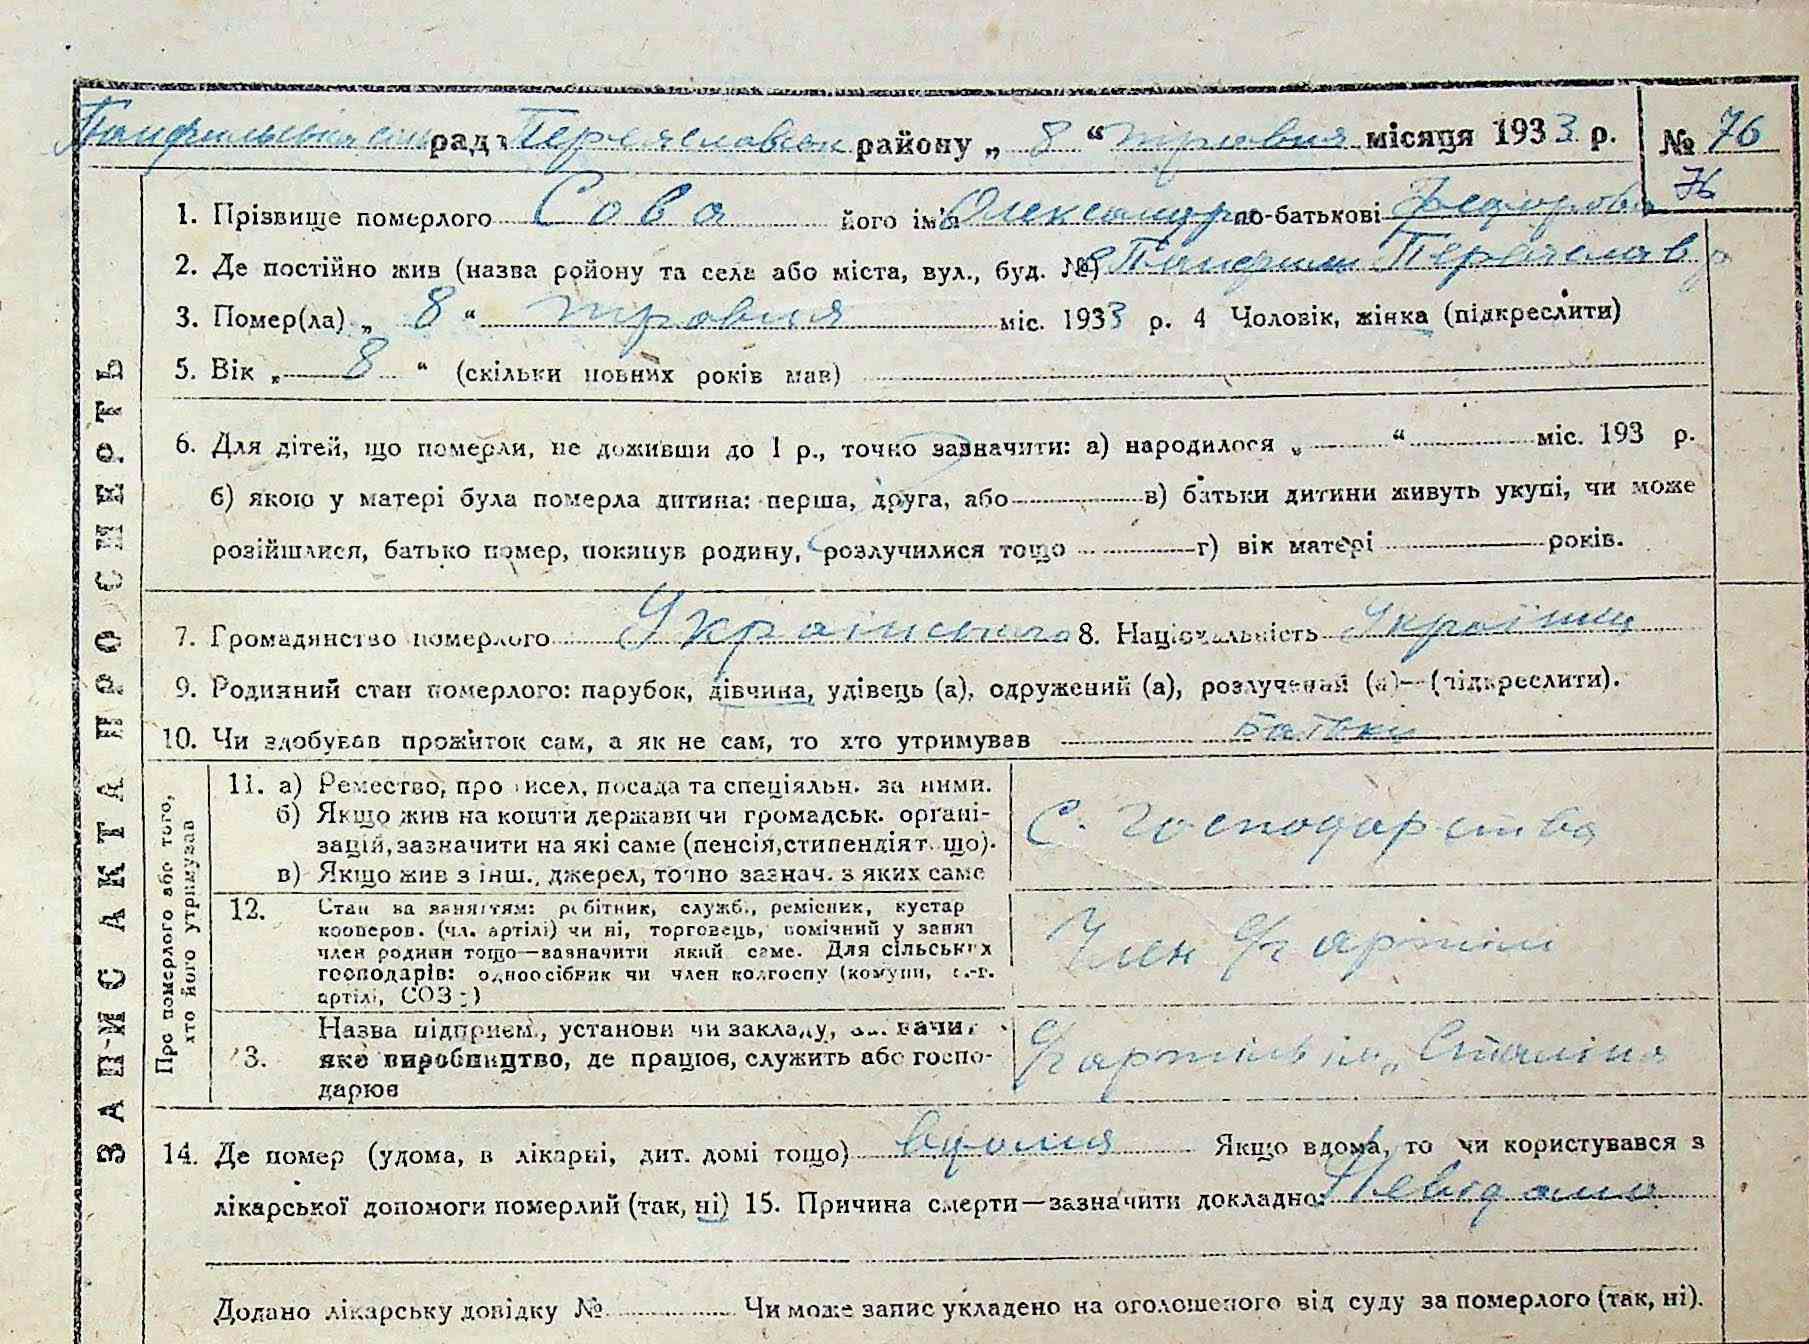 Панфильська сіль рад Переяславськ району „ 8 “ травня місяця 1933 р. № 76
76
1. Прізвище померлого Сова його ім'я Олександра по-батькові Федорова
2. Де постійно жив (назва ройону та села або міста, вул., буд. №) Панфили Переяслав р
3. Помер(ла) „ 8 “ травня міс. 1933 р. 4 Чоловік, жінка (підкреслити)
5. Вік „ 8 “ (скільки повних років мав)
6. Для дітей, що померли, не доживши до 1 р., точно зазначити: а) народилося „ “ міс. 193 р.
б) якою у матері була померла дитина: перша, друга, або в) батьки дитини живуть укупі, чи може
розійшлися, батько помер, покинув родину, розлучилися тощо г) вік матері років.
7. Громадянство померлого Українського 8. Національність Українц
9. Родинний стан померлого: парубок, дівчина, удівець (а), одружений (а), розлучений (а)— (підкреслити).
10. Чи здобував прожиток сам, а як не сам, то хто утримував батьки
ЗАПИС АКТА ПРО СМЕРТЬ
Про померлого або того, хто його утримував
11. а) Ремество, про исел, посада та спеціяльн. за ними.
б) Якщо жив на кошти держави чи громадськ. органі-
зацій, зазначити на які саме (пенсія, стипендія т. що).
в) Якщо жив з інш., джерел, точно зазнач. з яких саме
С. Господарства
12. Стан за заняттям: робітник, служб., ремісник, кустар
кооперов. (чл. артілі) чи ні, торговець, помічний у занят
член родини тощо—зазначити який саме. Для сільських
господарів: одноосібник чи член колгоспу (комуни, с.-г.
артілі, СОЗ;)
Член с/г артілі
13. Назва підприєм., установи чи закладу, зазначит
яке виробництво, де працює, служить або госпо-
дарює
с/г артіль ім „Сталіна
14. Де помер (удома, в лікарні, дит. домі тощо) вдома Якщо вдома, то чи користувався з
лікарської допомоги померлий (так, ні) 15. Причина смерти—зазначити докладно: Невідома
Додано лікарську довідку № Чи може запис укладено на оголошеного від суду за померлого (так, ні).